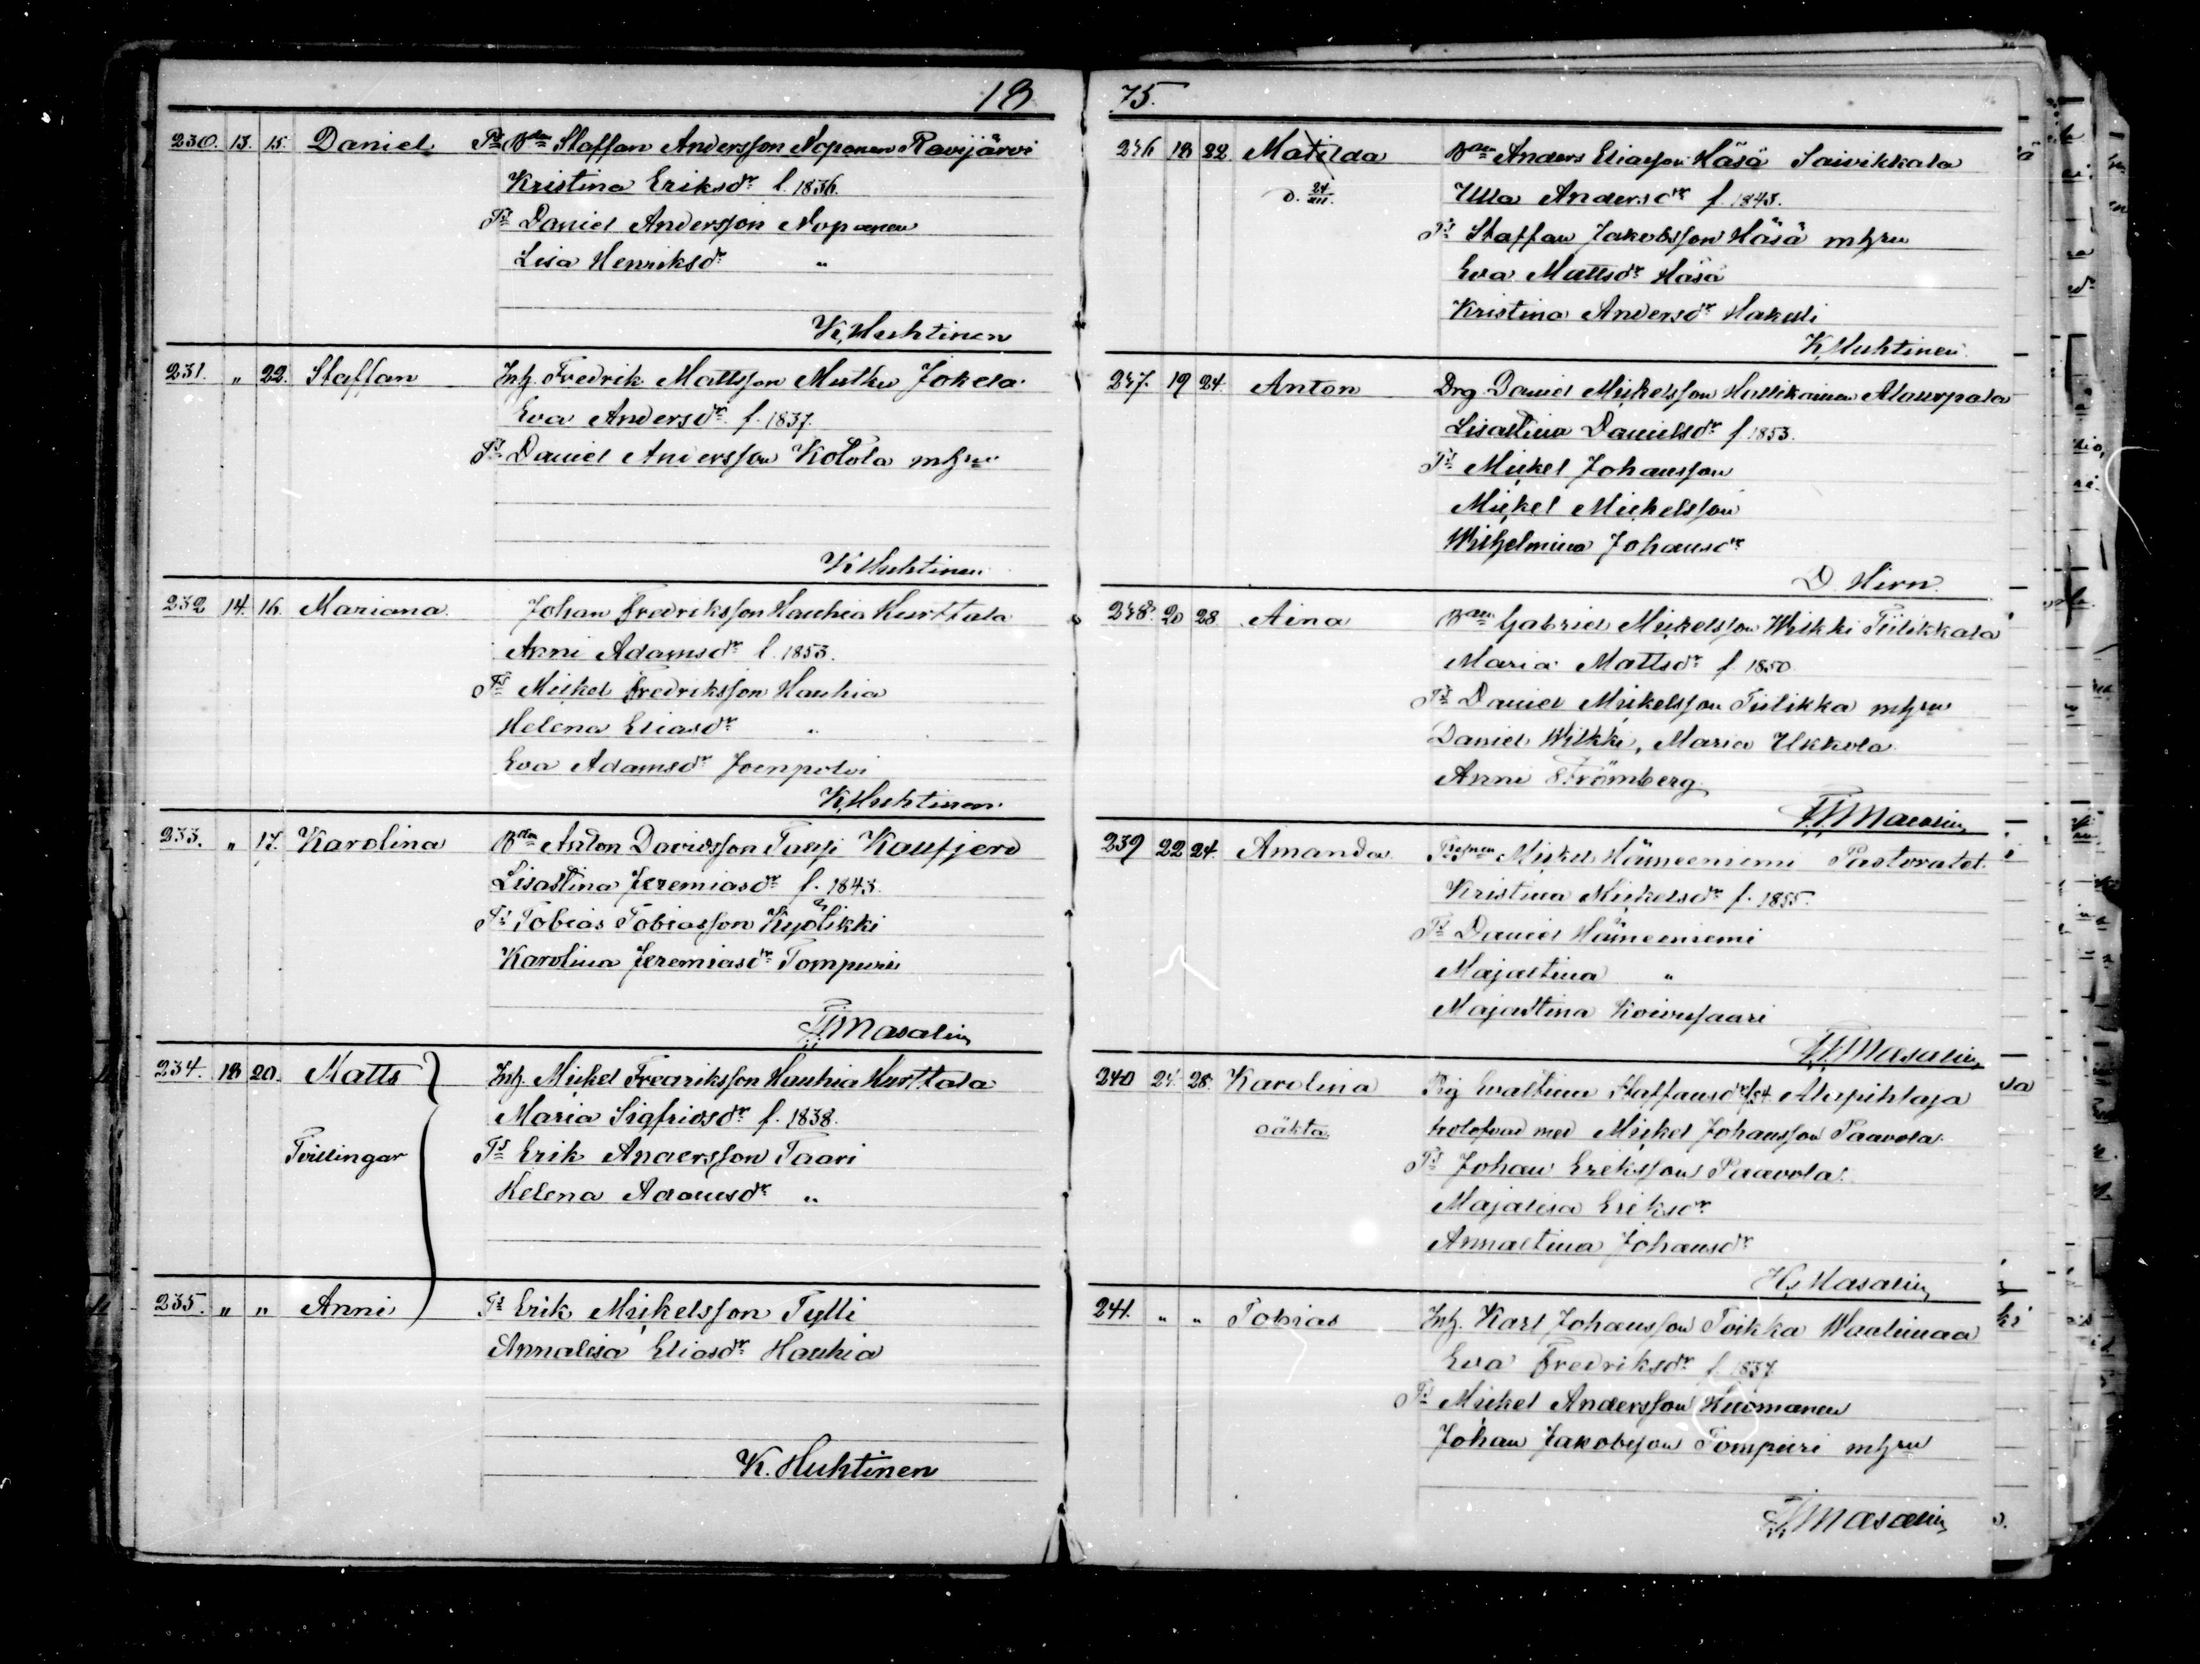 18
230. 13. 15. Daniel Bdn Staffan Andersson Noponen Ravijärvi
Kristina Eriksdr f. 1836.
Ts Daniel Andersson Noponen
Lisa Henriksdr "
K. Huhtinen
231. " 22. Staffan Inh. Fredrik Mattsson Mutku Jokela.
Eva Andersdr f. 1837.
Ts Daniel Andersson Kotola mhru
K. Huhtinen
232 14. 16. Mariana. Johan Fredriksson Hauhia Hurttala
Anni Adamsdr f. 1853.
Ts Mickel Fredriksson Hauhia
Helena Eliasdr "
Eva Adamsdr Joenpolvi
K. Huhtinen.
233. " 17. Karolina Bdn Anton Davidsson Kausjerv
Lisastina Jeremiasdr f. 1843.
Ts Tobias Tobiasson
Karolina Jeremiasdr Tompuri
Masalin
234. 18 20. Matts Inh. Mickel Fredriksson Hauhia Hurttala
Maria Sigfridsdr f. 1838.
Tvillingar Ts Erik Andersson Taari
Helena Adamsdr "
235. " " Anni Ts Erik Mickelsson Tylli
Annalisa Eliasdr Hauhia
K. Huhtinen
75.
236 18 22 Matilda Bdn Anders Eliasson Häsä Saivikkala
D. 24/XII. Ulla Andersdr f. 1843.
Ts Staffan Jakobsson Häsä mhru
Eva Mattsdr Häsä
Kristina Andersdr Hakuli
K. Huhtinen.
237. 19 24. Anton Drg Daniel Mickelsson Hallikainen Alaurpala
Lisastina Danielsdr f. 1853.
Ts Mickel Johansson
Mickel Mickelsson
Wilhelmina Johansdr
D. Hirn.
238. 20 28 Aina Bdn Gabriel Mickelsson Wilkki Tiilikkala
Maria Mattsdr f. 1850.
Ts Daniel Mickelsson Tiilikka mhru
Daniel Wilkki, Maria Ukkola
Anni Strömberg
Masalin
239 22 24. Amanda Mickel Hämeeniemi Pastoratet.
Kristina Mickelsdr f. 1855.
Ts Daniel Hämeeniemi
Majastina "
Majastina Koivusaari
Masalin
240 24. 28. Karolina Pig Evastina Staffansdr Alapihlaja
oäkta. trolofvad med Mickel Johansson Paavola.
Ts Johan Eriksson Paavola.
Majalisa Eriksdr
Annastina Johansdr
Masalin
241. " " Tobias Inh. Karl Johansson Toikka Waalimaa
Eva Fredriksdr f. 1837.
Ts Mickel Andersson Huomanen
Johan Jakobsson Tompuri mhru
Masalin